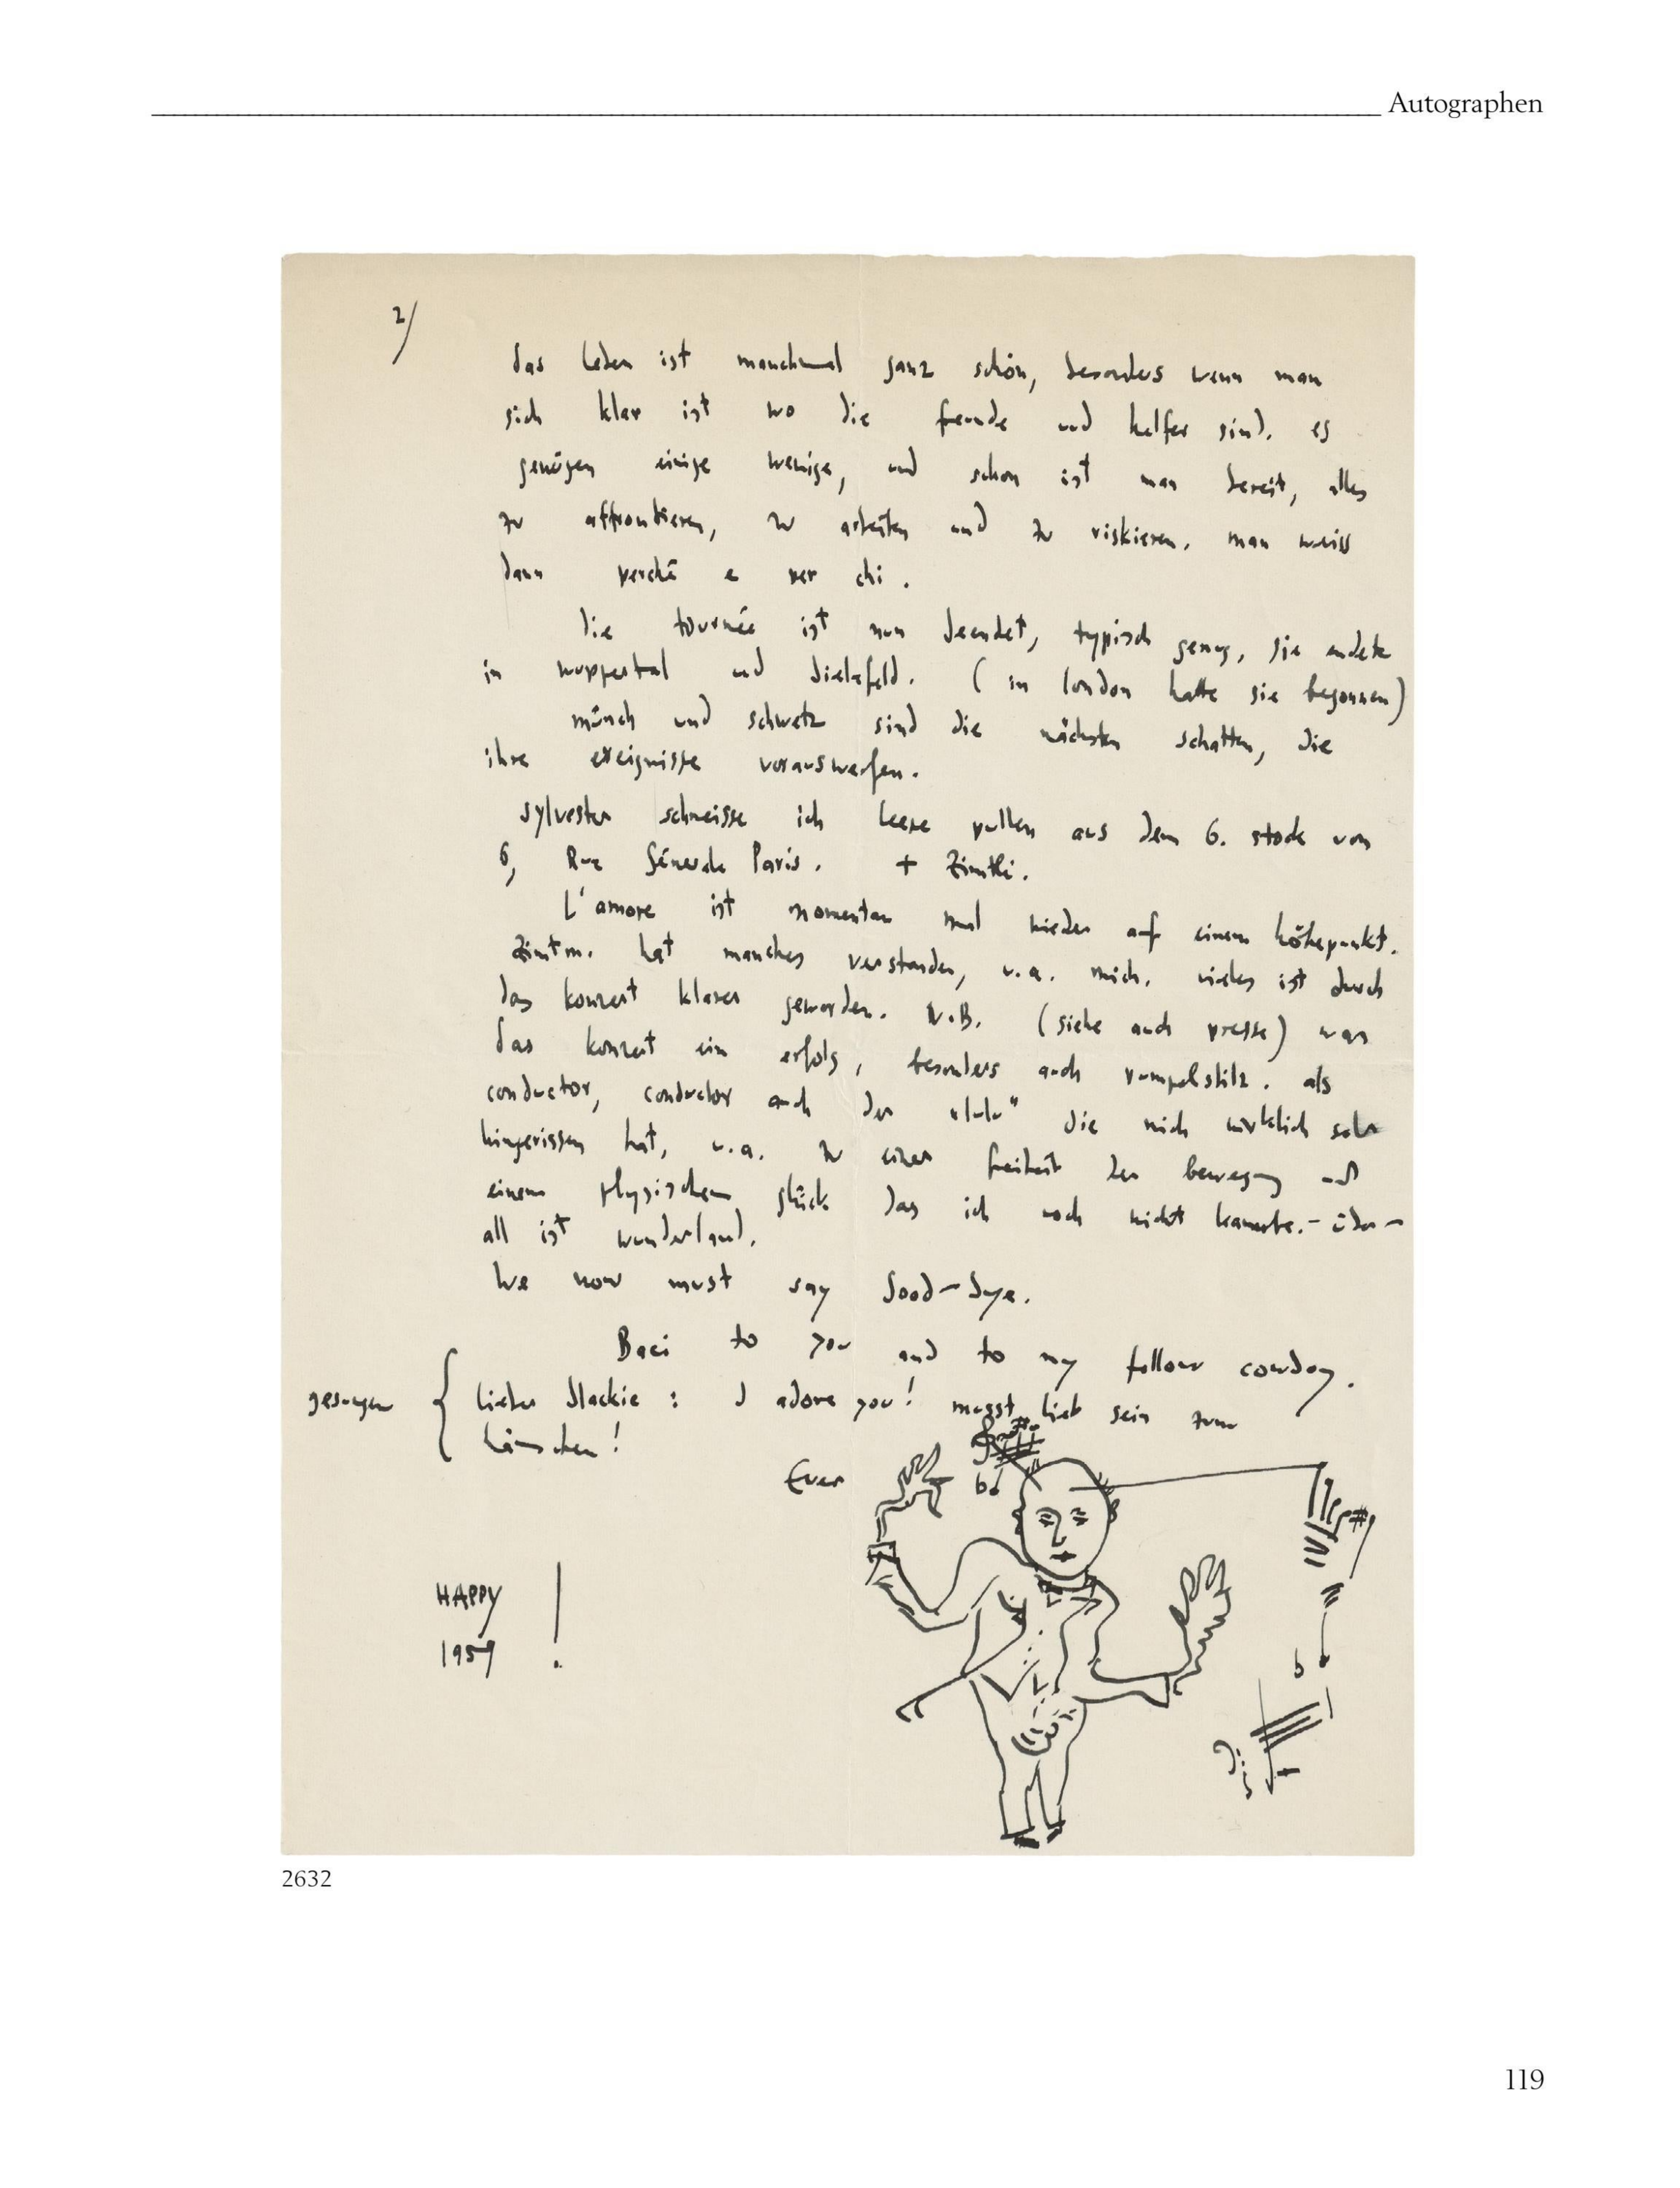 Autographen
2/
das leben ist manchmal ganz schön, besonders wenn man
sich klar ist wo die freunde und helfer sind. es
genügen einige wenige, und schon ist man bereit, alles
zu affrontieren, zu arbeiten und zu riskieren. man weiss
dann perché e per chi.
die tournée ist nun beendet, typisch genug, sie endete
in wuppertal und bielefeld. (in london hatte sie begonnen)
münch und schwetz sind die nächsten schatten, die
ihre ereignisse vorauswerfen.
sylvester schmeisse ich leere pullen aus dem 6. stock von
6, Rue Paris. +
L'amore ist momentan mal wieder auf einem höhepunkt.
hat manches verstanden, u.a. mich. vieles ist durch
das konzert klarer geworden. N.B. (siehe auch presse) war
das konzert ein erfolg, besonders auch rumpelstilz. als
conductor, conductor auch der "lulu" die mich wirklich sehr
hingerissen hat, u.a. zu einer freiheit der bewegung und
einem physischen glück das ich noch nicht kannte. - über-
all ist wunderland.
We now must say Good-bye.
Baci to you and to my fellow cowboy.
gesungen { lieber Mackie : I adore you! musst lieb sein zum
hänschen!
Ever
HAPPY
1959 !
2632
119